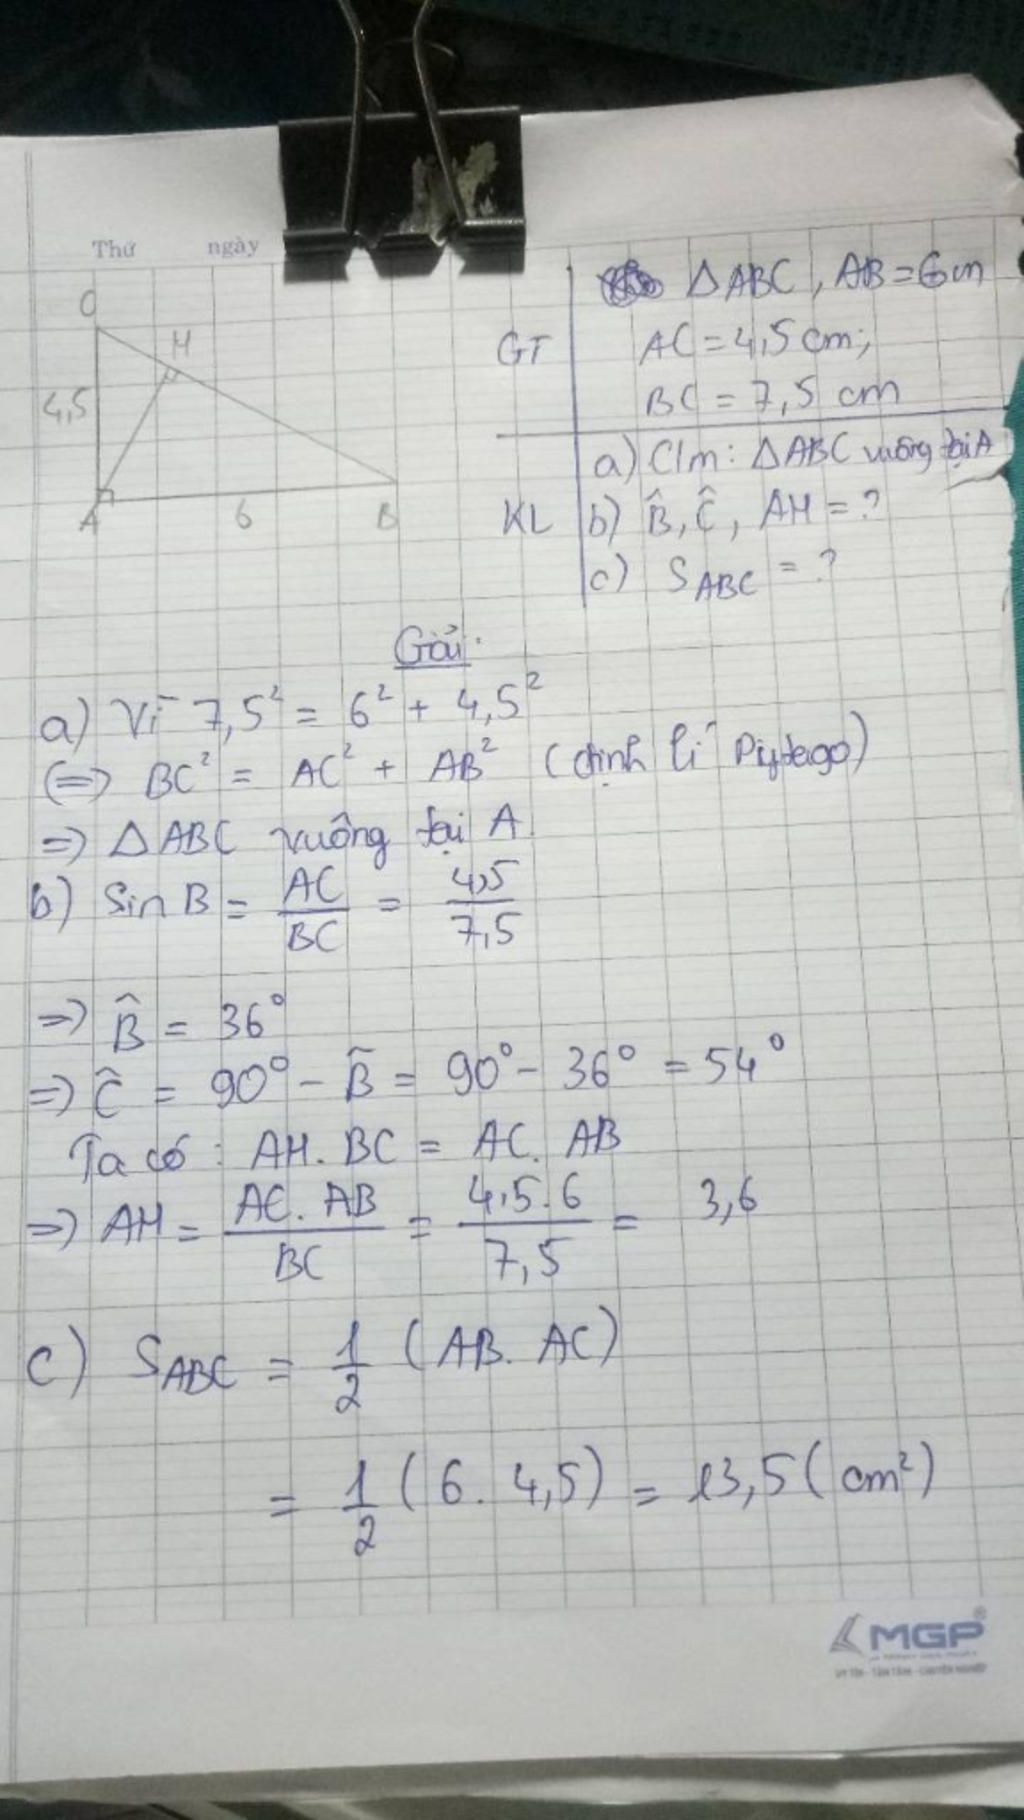 Thứ ngày
C
H
4,5
A 6 B
GT
ΔABC, AB = 6cm
AC = 4,5 cm;
BC = 7,5 cm
KL
a) C/m: ΔABC vuông tại A
b) B̂, Ĉ, AH = ?
c) S_ABC = ?
Giải:
a) Vì 7,5² = 6² + 4,5²
(=> BC² = AC² + AB² (định lí Pytago)
=> ΔABC vuông tại A
b) Sin B = AC/BC = 4,5/7,5
=> B̂ = 36°
=> Ĉ = 90° - B̂ = 90° - 36° = 54°
Ta có : AH. BC = AC. AB
=> AH = AC. AB/BC = 4,5.6/7,5 = 3,6
c) S_ABC = 1/2 (AB. AC)
= 1/2 (6. 4,5) = 13,5 (cm²)
MGP®